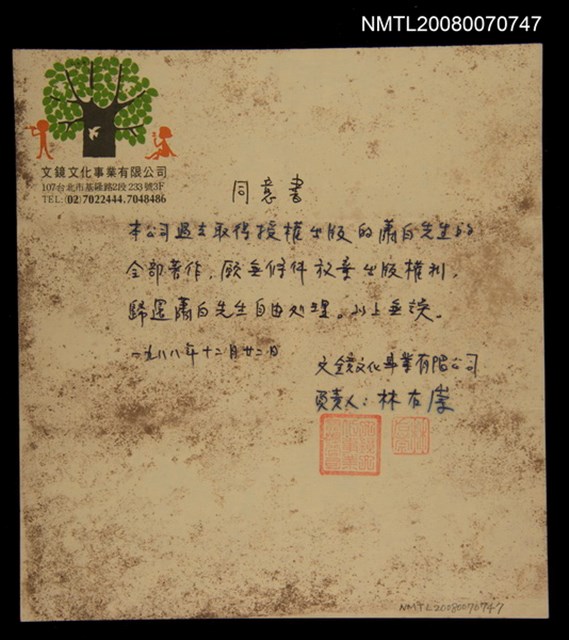 NMTL20080070747
文鏡文化事業有限公司
107台北市基隆路2段233號3F
TEL:(02)7022444.7048486
同意書
本公司過去取得授權出版的蕭白先生的
全部著作，願無條件放棄出版權利，
歸還蕭白先生自由處理。以上無誤。
一九八八年十二月廿二日
文鏡文化事業有限公司
負責人：林右崇
NMTL20080070747